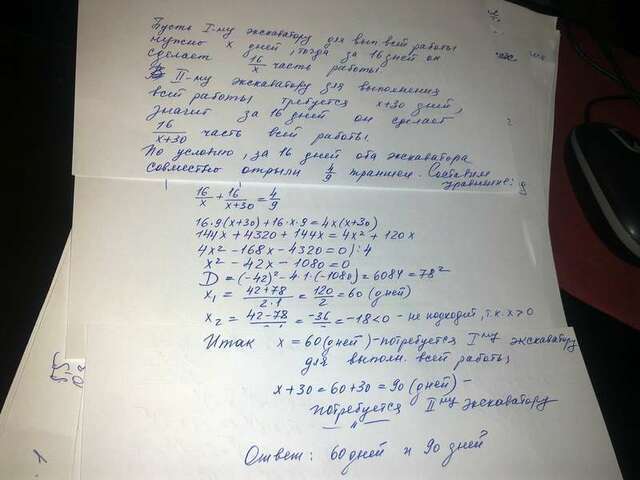 Пусть I-му экскаватору для вып. всей работы
нужно x дней, тогда за 16 дней он
сделает 16/x часть работы.
II-му экскаватору для выполнения
всей работы требуется x+30 дней,
значит за 16 дней он сделает
16/(x+30) часть всей работы.
По условию, за 16 дней оба экскаватора
совместно отрыли 4/9 траншеи. Составим
уравнение:
16/x + 16/(x+30) = 4/9
16·9(x+30)+16·x·9=4x(x+30)
144x+4320+144x=4x²+120x
4x²-168x-4320=0):4
x²-42x-1080=0
D=(-42)²-4·1·(-1080)=6084=78²
x₁ = (42+78)/(2·1) = 120/2 = 60 (дней)
x₂ = (42-78)/(2·1) = -36/2 = -18<0 - не подходит, т.к. x>0
Итак x=60(дней)-потребуется I му экскаватору
для выполн. всей работы,
x+30=60+30=90(дней)-
потребуется II му экскаватору
—〃—
Ответ: 60 дней и 90 дней